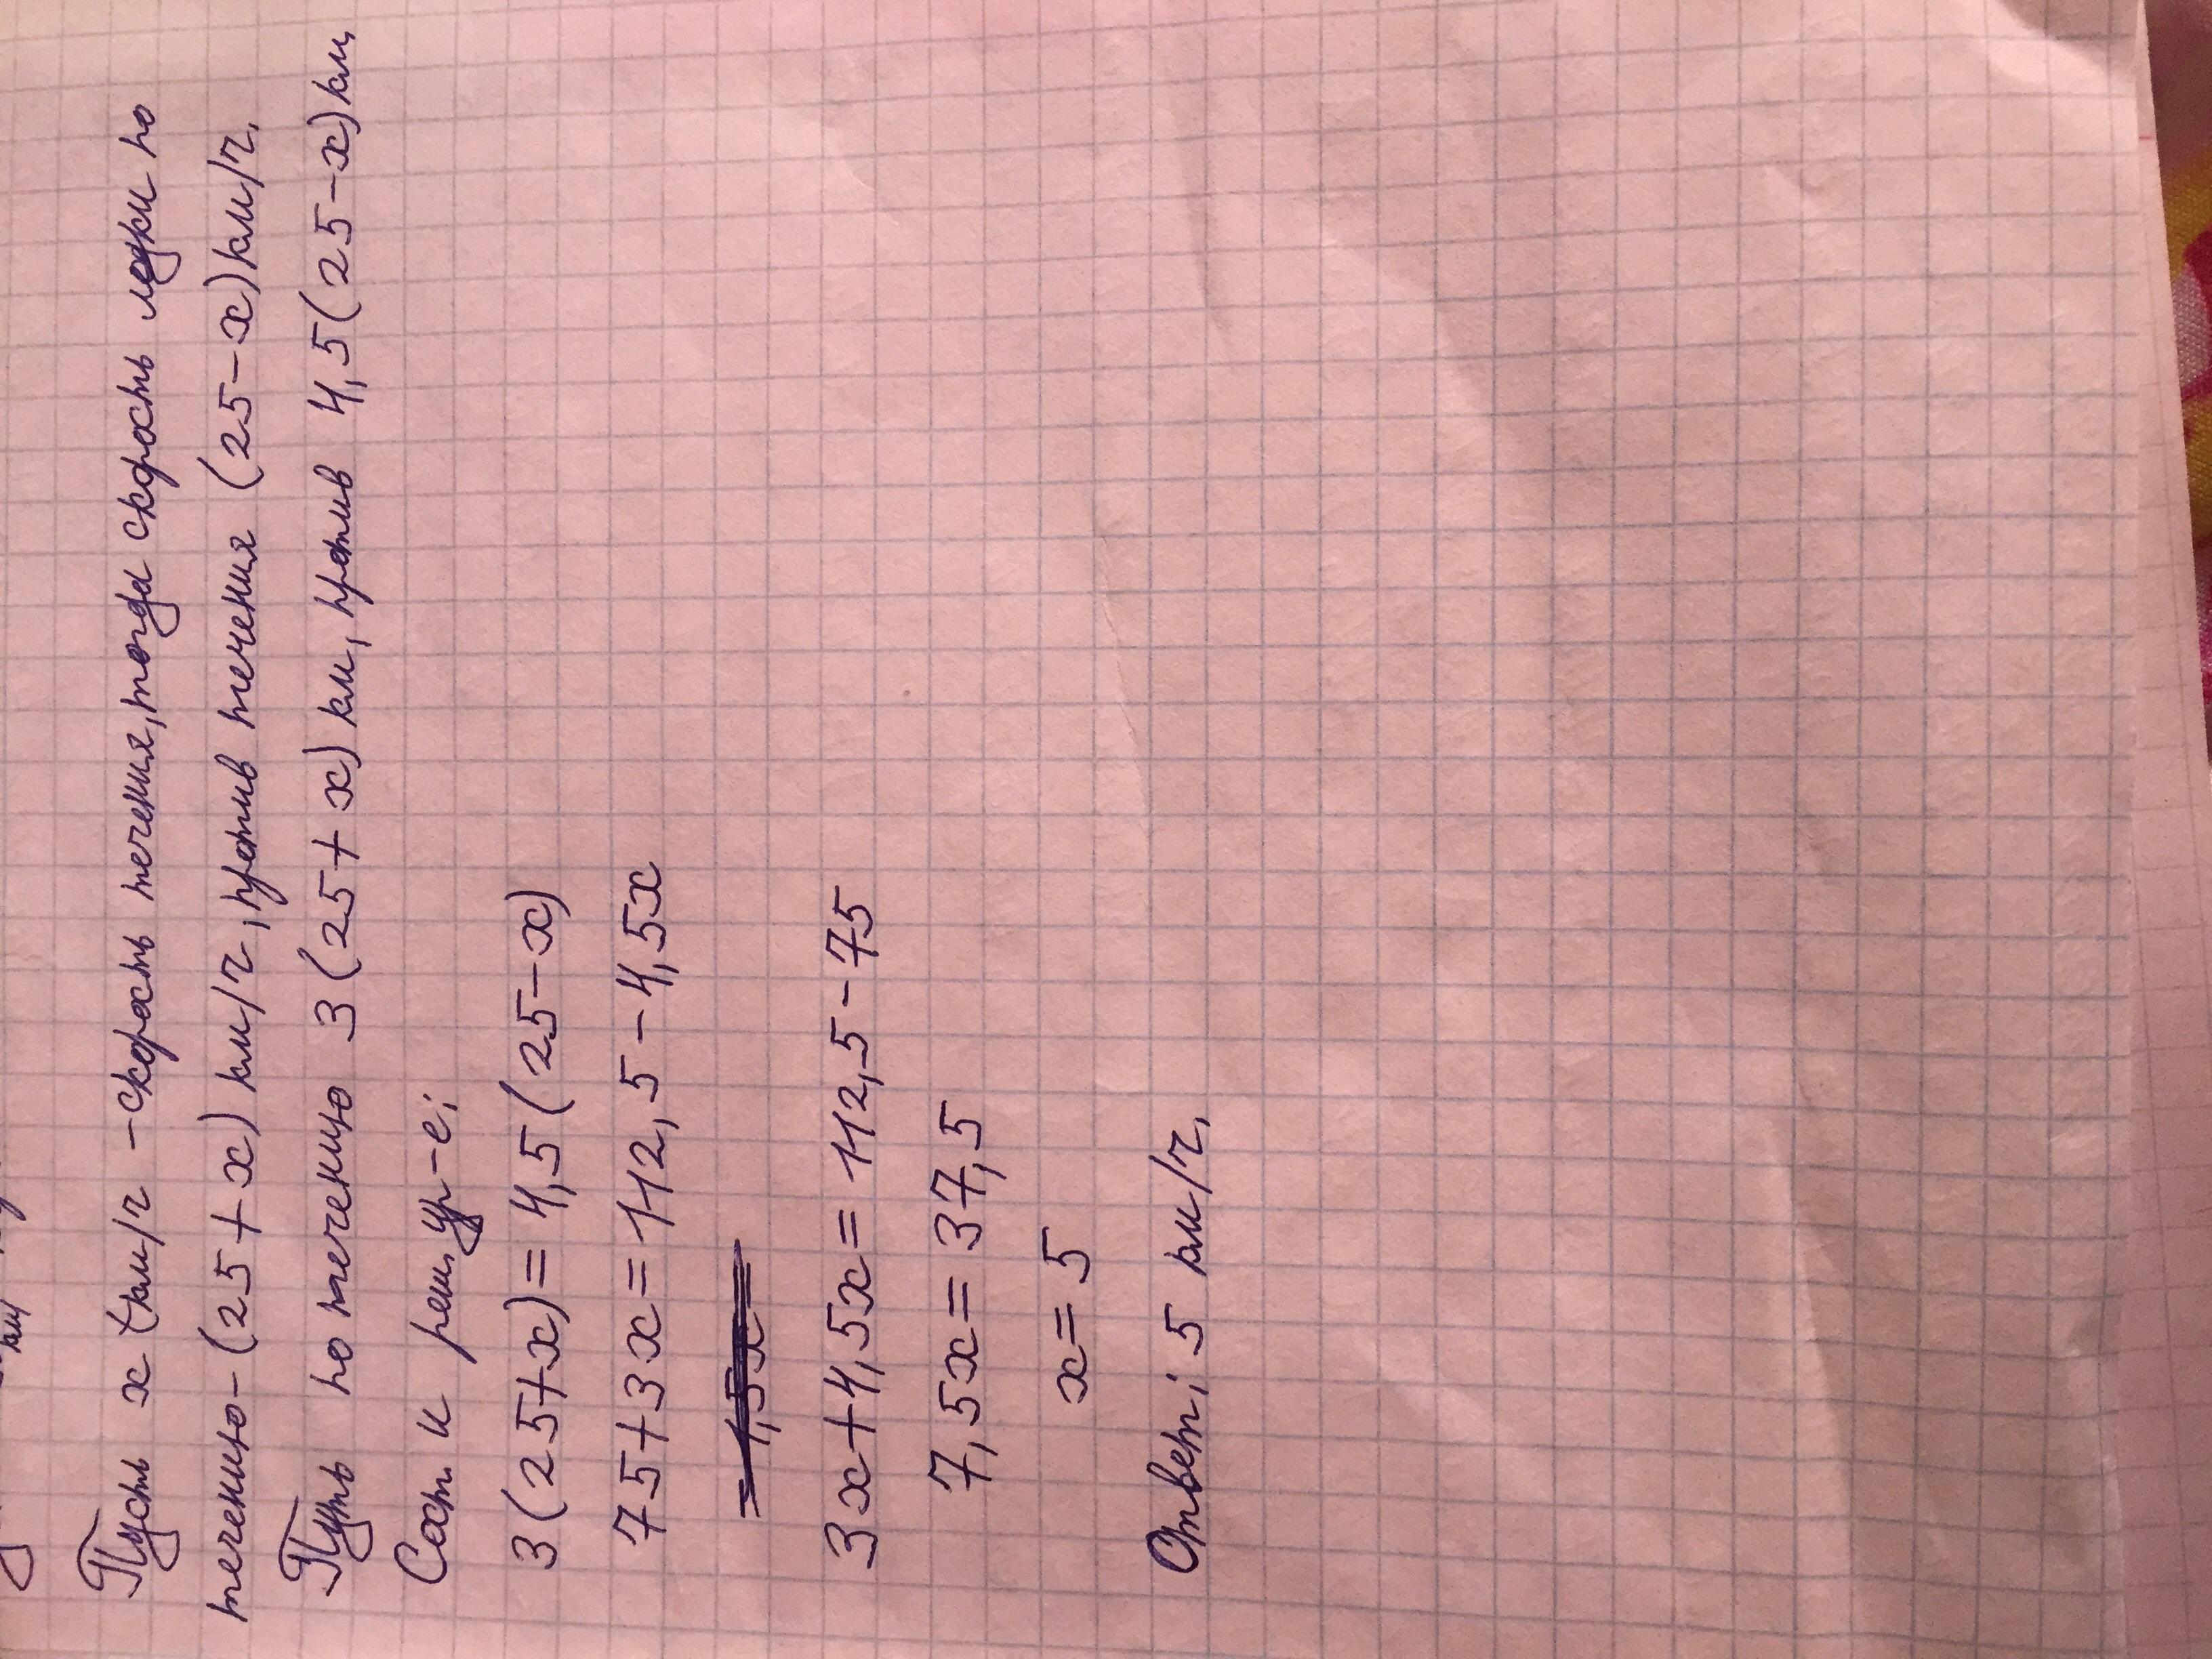 Пусть x (км/ч - скорость течения, тогда скорость лодки по
течению - (25 + x) км/ч, против течения (25 - x) км/ч.
Путь по течению 3 (25 + x) км, против 4,5 (25 - x) км.
Сост. и реш. ур-е:
3 (25 + x) = 4,5 (25 - x)
75 + 3x = 112,5 - 4,5x
3x + 4,5x = 112,5 - 75
7,5x = 37,5
x = 5
Ответ: 5 км/ч.